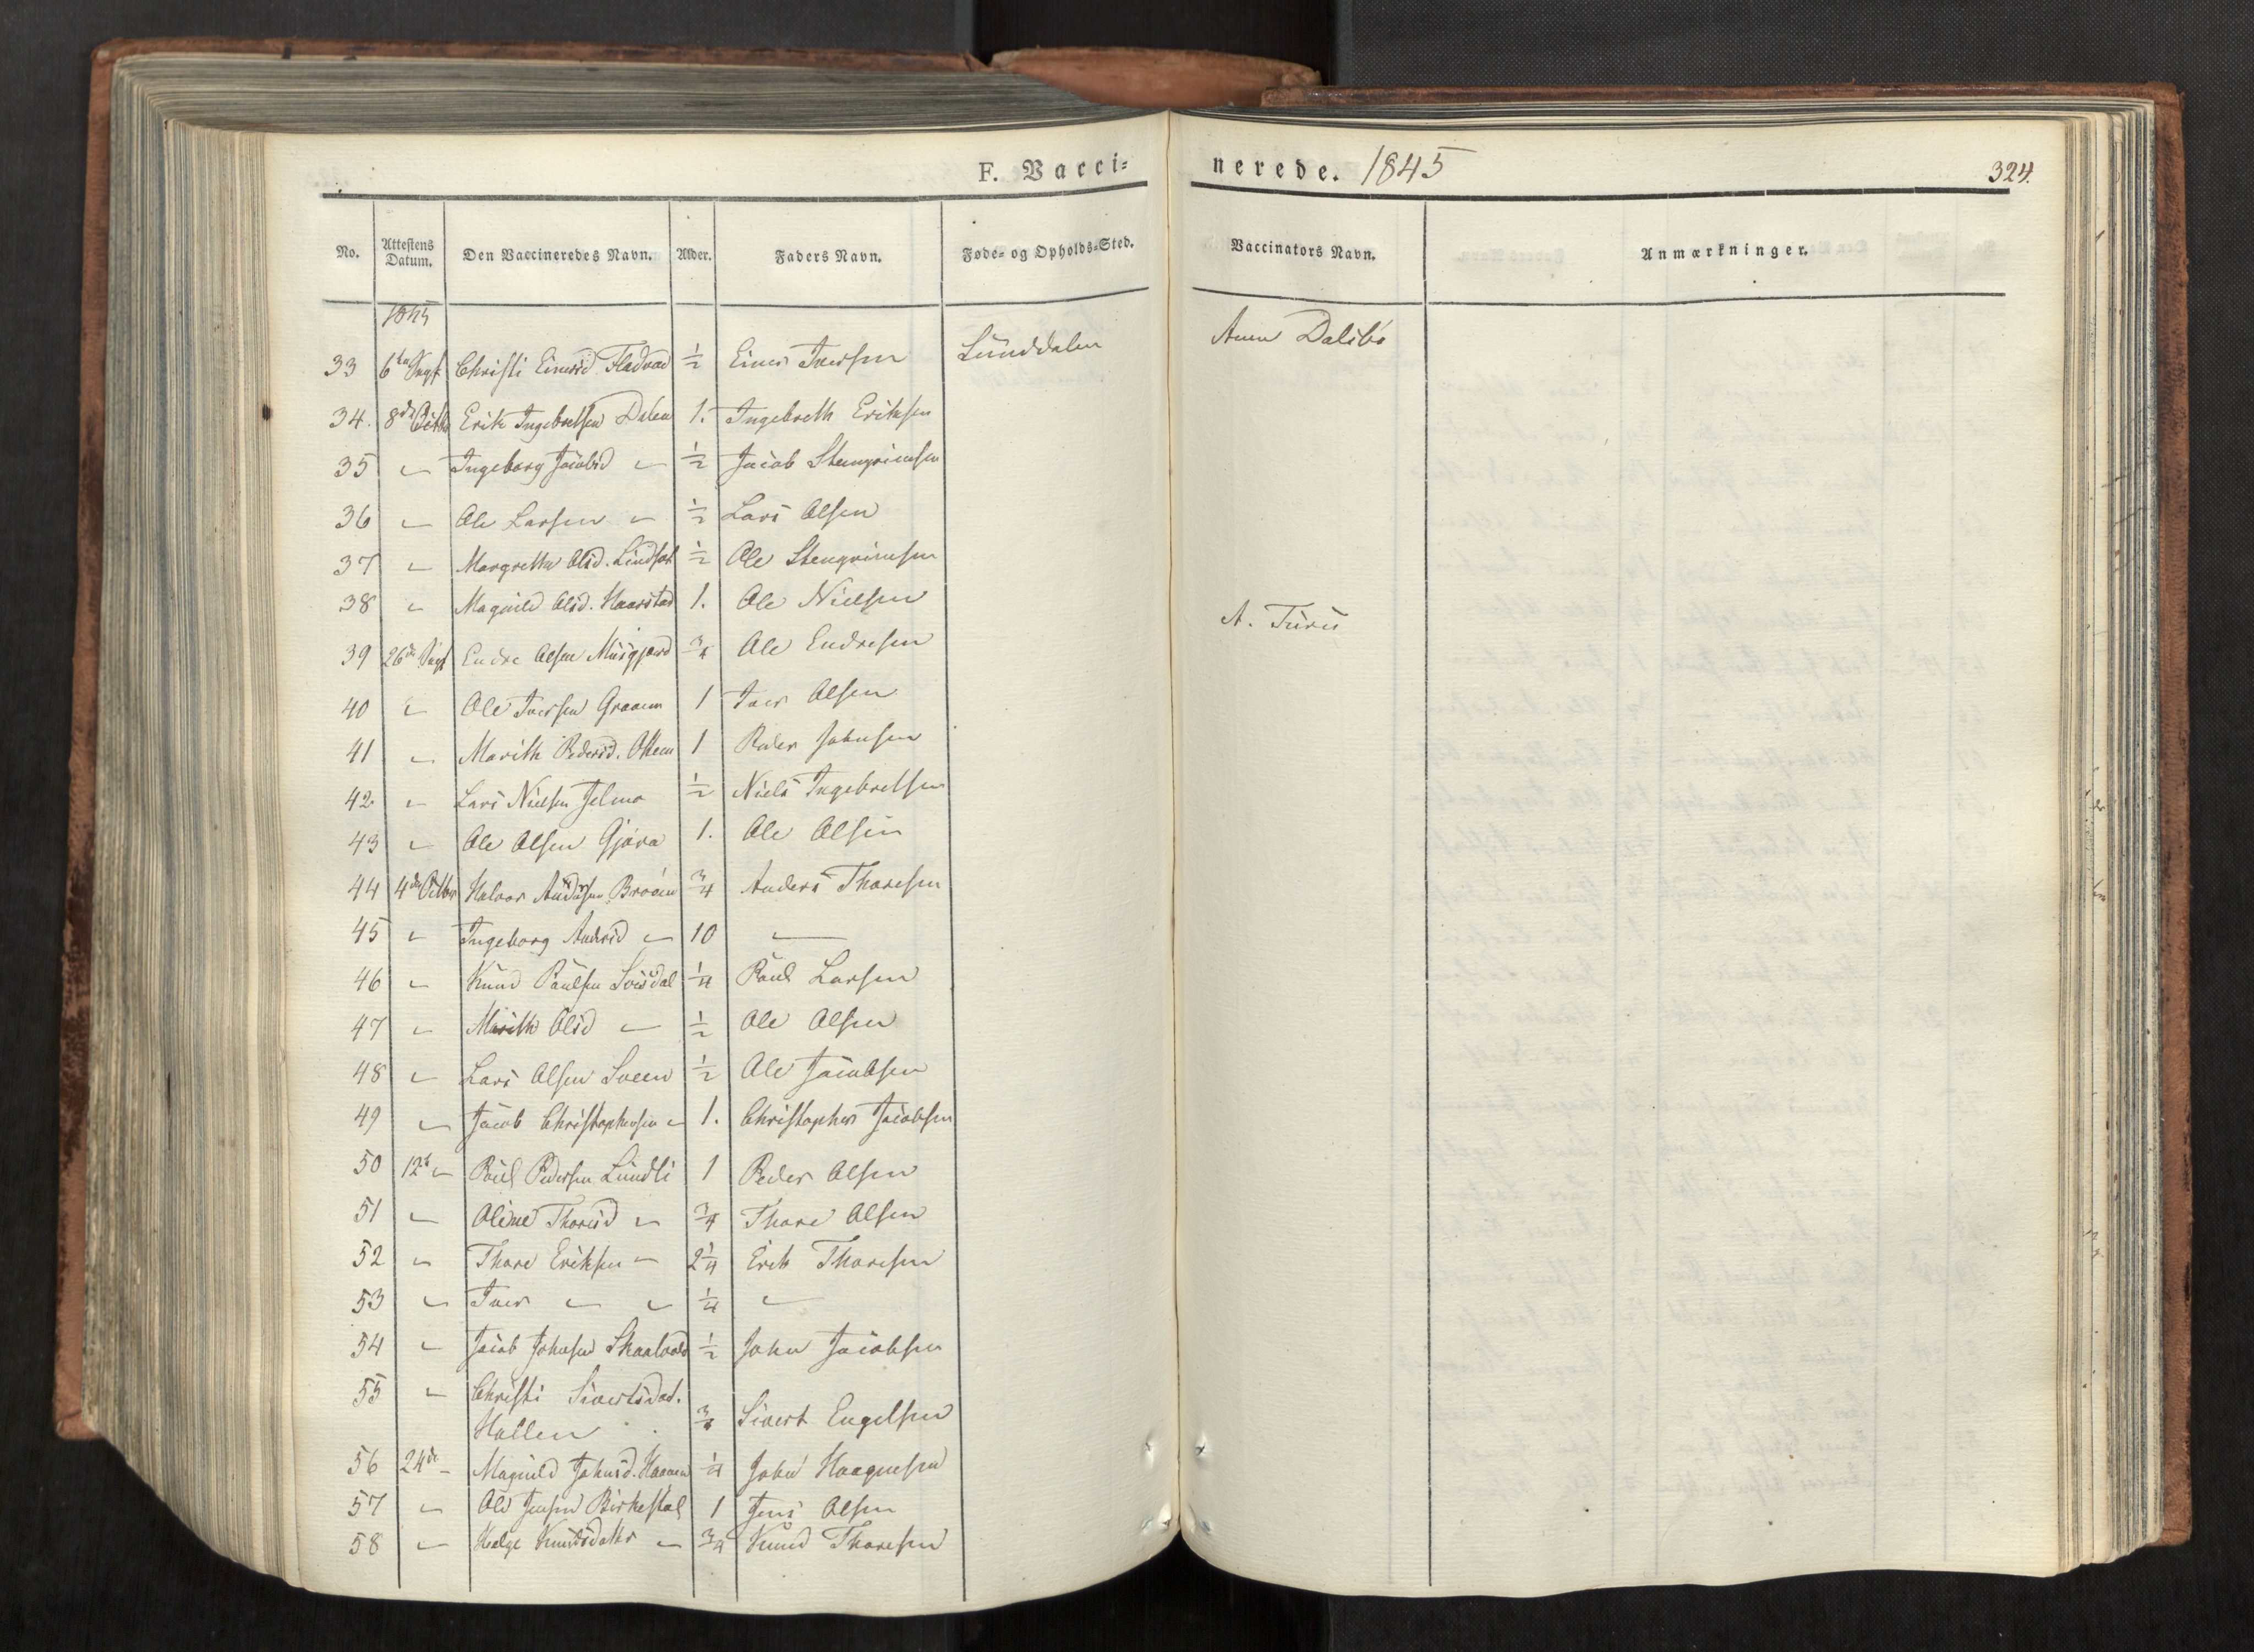 F. Vacci=
nerede. 1845
324.
No.
Attestens Datum.
Den Vaccineredes Navn.
Alder.
Faders Navn.
Føde= og Opholds=Sted.
Vaccinators Navn.
Anmærkninger.
1845
33 Christi Einersd Fladvad 1/2 Einer Iversen Sunddalen
34. 8de Erik Ingebretsen Dalen 1. Ingebreth Eriksen
35 " Ingeborg Jacobsd " 1/2 Jacob Stengrimsen
36 " Ole Larsen " 1/2 Lars Olsen
37 " Margrethe Olsd. 1/2 Ole Stengrimsen
38 " Magnild Olsd. Haarstad 1. Ole Nielsen A.
39 26de Endre Olsen Musgjerd 3/4 Ole Endresen
40 " Ole Iversen Graaem 1 Iver Olsen
41 " Marith Pedersd. Ottem 1 Peder Johnsen
42 " Lars Nielsen Jelmo 1/2 Niels Ingebretsen
43 " Ole Olsen Gjøra 1. Ole Olsen
44 4de Octbr Halvor Andersen 3/4 Anders Thoresen
45 " Ingeborg Andersd " 10 "
46 " Knud Paulsen 1/4 Paul Larsen
47 " Marith Olsd " 1/2 Ole Olsen
48 " Lars Olsen Sveen 1/2 Ole Jacobsen
49 " Jacob Christophersen " 1. Christopher Jacobsen
50 12te " Paul Pedersen Lundli 1 Peder Olsen
51 " Oline Thoresd " 3/4 Thore Olsen
52 " Thore Eriksen " 2 1/4 Erik Thoresen
53 " Iver " " 1/4 "
54 " Jacob Johnsen 1/2 John Jacobsen
55 " Christi Sivertsdat.
Hallen 3/4 Sivert Engelsen
56 24de " Magnild Johnsd. 1/4 John Haagensen
57 " Ole Jensen Birkestøl 1 Jens Olsen
58 " Helge Knudsdatter " 3/4 Knud Thoresen